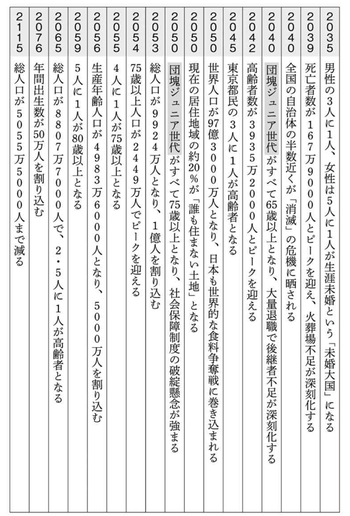 2035 男性の3人に1人、女性は5人に1人が生涯未婚という「未婚大国」になる
2039 死亡者数が167万9000人とピークを迎え、火葬場不足が深刻化する
2040 全国の自治体の半数近くが「消滅」の危機に晒される
2040 団塊ジュニア世代がすべて65歳以上となり、大量退職で後継者不足が深刻化する
2042 高齢者数が3935万2000人とピークを迎える
2045 東京都民の3人に1人が高齢者となる
2050 世界人口が97億3000万人となり、日本も世界的な食料争奪戦に巻き込まれる
2050 現在の居住地域の約20%が「誰も住まない土地」となる
2050 団塊ジュニア世代がすべて75歳以上となり、社会保障制度の破綻懸念が強まる
2053 総人口が9924万人となり、1億人を割り込む
2054 75歳以上人口が2449万人でピークを迎える
2055 4人に1人が75歳以上となる
2056 生産年齢人口が4983万6000人となり、5000万人を割り込む
2059 5人に1人が80歳以上となる
2065 総人口が8807万7000人で、2・5人に1人が高齢者となる
2076 年間出生数が50万人を割り込む
2115 総人口が5055万5000人まで減る